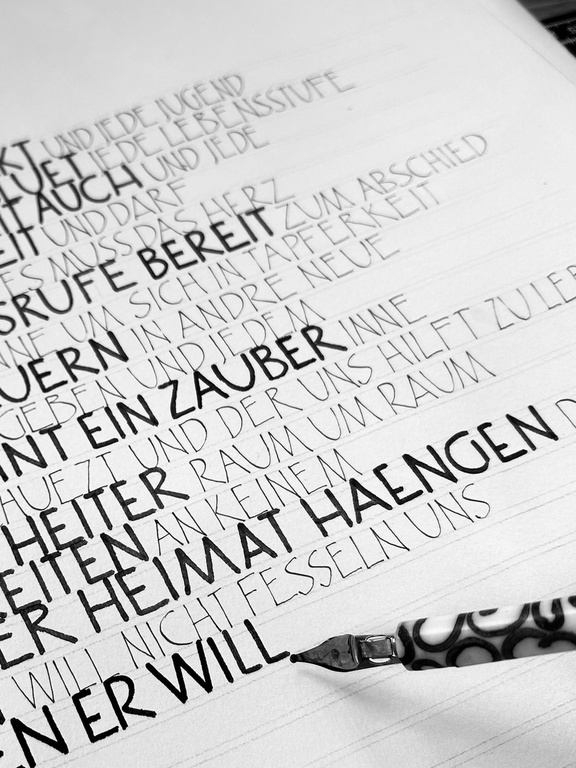 KT UND JEDE JUGEND
TUET JEDE LEBENSSTUFE
T AUCH UND JEDE
EIT UND DARF
ES MUSS DAS HERZ
SRUFE BEREIT ZUM ABSCHIED
NNE UM SICH IN TAPFERKEIT
UERN IN ANDRE NEUE
GEBEN UND JEDEM
NT EIN ZAUBER INNE
HUEZT UND DER UNS HILFT ZU LEB
HEITER RAUM UM RAUM
EITEN AN KEINEM
ER HEIMAT HAENGEN D
WILL NICHT FESSELN UNS
EN ER WILL